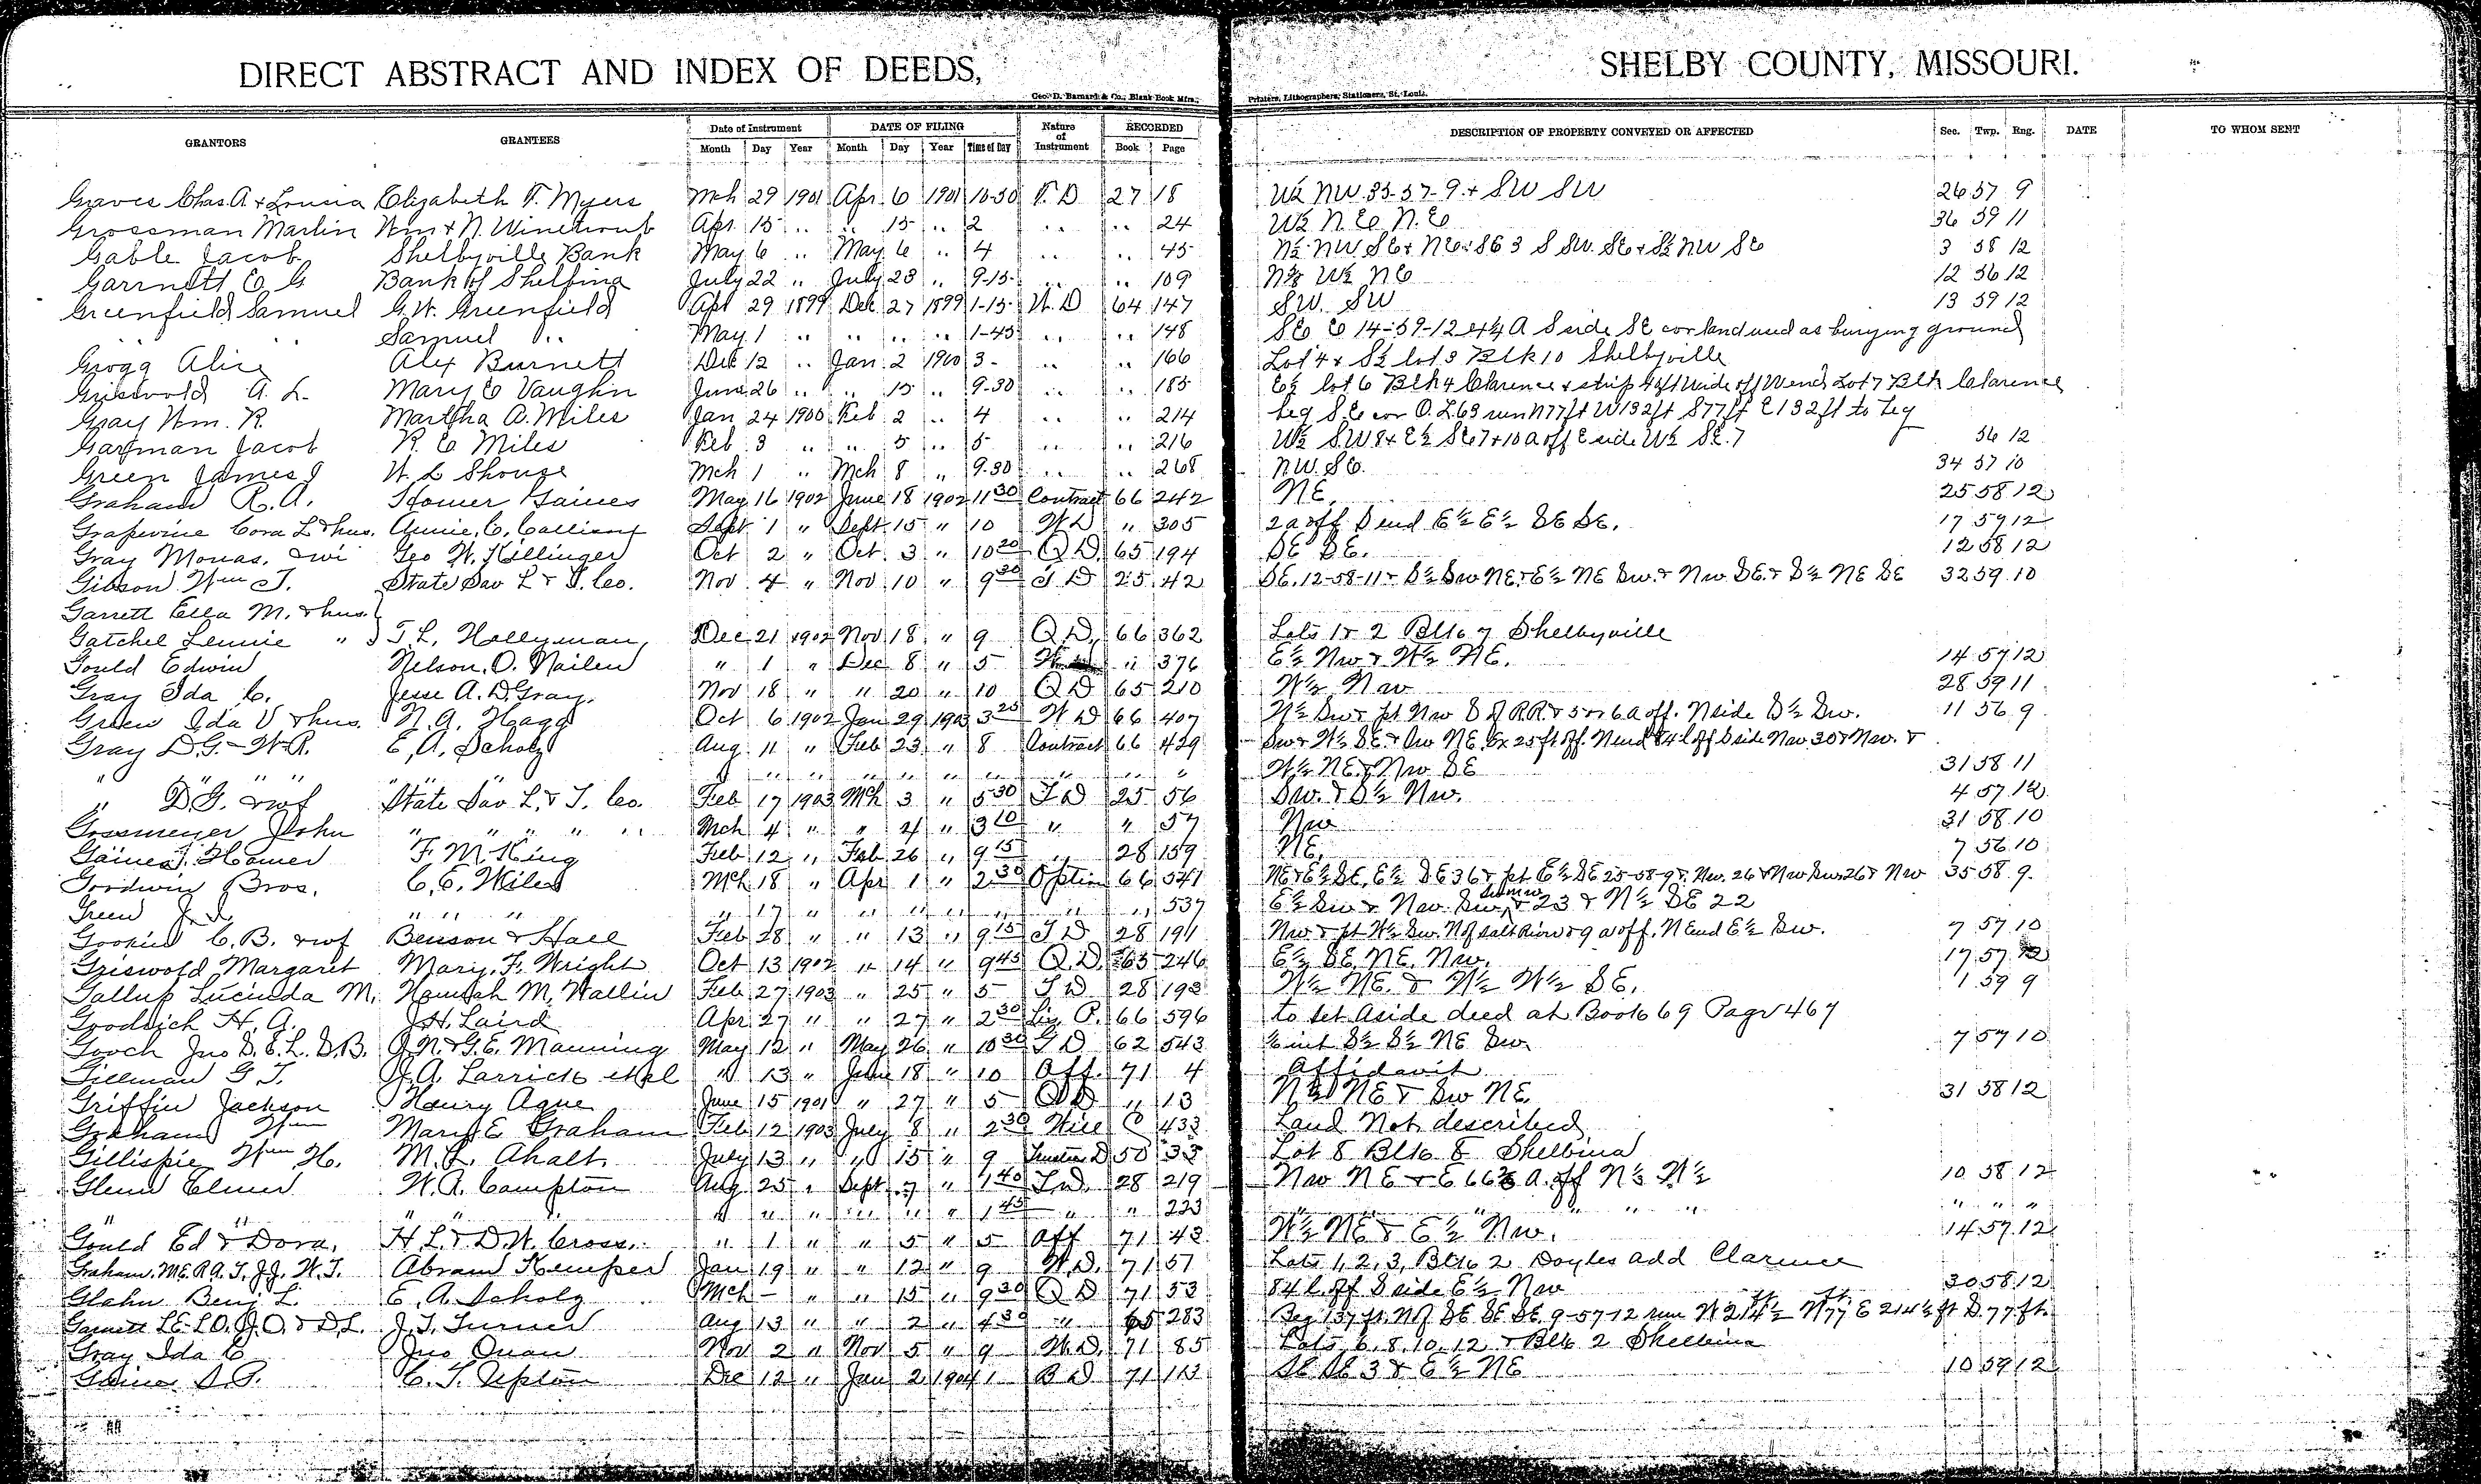 DIRECT ABSTRACT AND INDEX OF DEEDS, SHELBY COUNTY, MISSOURI.
Geo. D. Barnard & Co., Blank Book Mfrs., Printers, Lithographers, Stationers, St. Louis.
GRANTORS GRANTEES Date of Instrument DATE OF FILING Nature of Instrument RECORDED DESCRIPTION OF PROPERTY CONVEYED OR AFFECTED Sec. Twp. Rng. DATE TO WHOM SENT
Month Day Year Month Day Year Time of Day Book Page
Graves Chas. A & Lousia Elizabeth T. Myers Mch 29 1901 Apr 6 1901 10-30 T. D 27 18 W½ NW 35-57-9 & SW SW 26 57 9
Grossman Martin Wm & N. Winetrout Apr 15 .. .. 15 .. 2 .. .. 24 W½ N.E N.E 36 59 11
Gable Jacob Shelbyville Bank May 6 .. May 6 .. 4 .. .. 45 N½ NW SE & NE SE 3 S SW SE & S½ NW SE 3 58 12
Garrnett E G Bank of Shelbina July 22 .. July 23 .. 9-15 .. .. 109 W½ NE 12 56 12
Greenfield Samuel G.W. Greenfield Apr 29 1899 Dec 27 1899 1-15 W. D 64 147 SW. SW 13 59 12
.. .. Samuel .. May 1 .. .. .. .. 1-45 .. .. 148 SE E 14-59-12 & ¼ A S side SE cor land used as burying ground
Grogg Alice Alex Burnett Dec 12 .. Jan 2 1900 3- .. .. 166 Lot 4 & S½ lot 3 Blk 10 Shelbyville
Griswold A. L. Mary E Vaughn June 26 .. .. 15 .. 9-30 .. .. 185 E½ lot 6 Blk 4 Clarence & strip 4 ft wide off W end Lot 7 Blk Clarence
Gray Wm. R. Martha A. Miles Jan 24 1900 Feb 2 .. 4 .. .. 214 beg S.E cor O.L 63 run N 77 ft W 132 ft S 77 ft E 132 ft to beg
Garman Jacob R. E Miles Feb 3 .. .. 5 .. 5- .. .. 216 W½ SW 8 & E½ SE 7 & 10 a off E side W½ SE. 7 56 12
Green James J W. L Shouse Mch 1 .. Mch 8 .. 9.30 .. .. 268 NW. SE. 34 57 10
Graham R. A. Homer Gaines May 16 1902 June 18 1902 11 30 Contract 66 242 NE. 25 58 12
Grapevine Cora L & hus. Annie. C. Sept 1 " Sept 15 " 10 W D " 305 2 a off S end E½ E½ SE SE. 17 59 12
Gray Monas. & wi Geo W. Killinger Oct 2 " Oct. 3 " 10 20 Q D. 65 194 SE SE. 12 58 12
Gibson Wm T. State Sav L & T. Co. Nov 4 " Nov 10 " 9 30 T D 25 42 SE. 12-58-11 & S½ SW NE. & E½ NE SW. & NW SE. & S½ NE SE 32 59 10
Garrett Ella M. & hus.
Gatchel Lennie " T. L. Hollyman Dec 21 1902 Nov 18 " 9 Q D. 66 362 Lots 1 & 2 Blk 7 Shelbyville
Gould Edwin Nelson. O. Nailen " 1 " Dec 8 " 5 W " 376 E½ NW & W½ NE. 14 57 12
Gray Ida C. Jesse A. D. Gray. Nov 18 " " 20 " 10 Q D 65 210 W½ NW 28 59 11
Green Ida V & hus. N. A. Hagg Oct 6 1902 Jan 29 1903 3 25 W D 66 407 N½ SW & pt NW S of R.R. & 5 or 6 a off. N side S½ SW. 11 56 9
Gray D. G. - W. R. E. A. Scholz Aug. 11 " Feb 23 " 8 Contract 66 429 SW & W½ SE. & SW NE. Ex 25 ft off. N end & 84 l off S side NW 30 & NW. &
" " " " " " " " " " " " W½ NE. & NW SE 31 58 11
" D. G. & wf State Sav L. & T. Co. Feb 17 1903 Mch 3 " 5 30 T D 25 56 SW. & S½ NW. 4 57 12
Gossmeyer John " " " " " Mch 4 " " 4 " 3 10 " " 57 NW 31 58 10
Gaines J. Homer F. M. King Feb 12 " Feb 26 " 9 15 " 28 159 NE. 7 56 10
Goodwin Bros. C. E. Wiles Mch 18 " Apr 1 " 2 30 Option 66 541 NE & E½ SE. E½ SE 36 & pt E½ SE 25-58-9 & NW. 26 & NW SW 26 & NW 35 58 9
Green J. " " " " 17 " " " " " " " 537 E½ SW & NW. SW & 23 & N½ SE 22
Gookin C. B. & wf Benson & Hall Feb 28 " " 13 " 9 15 T D 28 191 NW & pt W½ SW. N of salt River & 9 a off. N end E½ SW. 7 57 10
Griswold Margaret Mary. F. Wright Oct 13 1902 " 14 " 9 45 Q. D. 65 246 E½ SE. NE. NW. 17 57
Gallup Lucinda M. Hannah M. Wallin Feb 27 1903 " 25 " 5 T D 28 193 W½ NE. & W½ W½ SE. 1 59 9
Goodrich H. A. J. H. Laird Apr 27 " " 27 " 2 30 Lis P. 66 596 to set aside deed at Book 69 Page 467
Gooch Jno D. E. L. D. B. J. N. & G. E. Manning May 12 " May 26 " 10 30 G D 62 543 int S½ S½ NE SW 7 57 10
Gillman G T. J. A. Larrick et al " 13 " June 18 " 10 Aff. 71 4 Affidavit
Griffin Jackson Henry Ague June 15 1901 " 27 " 5 Q D " 13 N½ NE & SW NE. 31 58 12
Graham Wm Mary E Graham Feb 12 1903 July 8 " 2 30 Will C 433 Land Not described
Gillispie Wm H. M. L. Ahalt. July 13 " " 15 " 9 Trustee D 50 33 Lot 8 Blk 8 Shelbina
Glenn Elmer W. R. Compton Aug 25 " Sept 7 " 1 40 T. D. 28 219 NW NE & E 66⅔ A. off N½ N½ 10 58 12
" " " " " " " " " " 1 45 " " 223 " " " " " "
Gould Ed & Dora. H L. & D. W. Cross. " 1 " " 5 " 5 Aff 71 43 W½ NE & E½ NW. 14 57 12
Graham. M.E. R.A. T. J.J. W.T. Abram Kemper Jan 19 " " 12 " 9 W. D. 71 57 Lots 1, 2, 3, Blk 2 Doyles add Clarence
Glahn Benj L. E. A. Scholz Mch - " " 15 " 9 30 Q D 71 53 84 l. off S side E½ NW 30 58 12
Garnett L.E. L.O. J.O. & D.L. J. T. Turner Aug 13 " " 2 " 4 30 " 65 283 Beg 137 ft. N of SE SE SE 9-57-12 run W 214½ ft N 77 ft E 214½ ft S. 77 ft.
Gray Ida C Jno Quan Nov 2 " Nov 5 " 9 W. D. 71 85 Lots 6. 8. 10. 12 & Blk 2 Shelbina
Gaines S. P. C. T. Upton Dec 12 " Jan 2 1904 1 B D 71 113 SE SE 3 & E½ NE 10 59 12